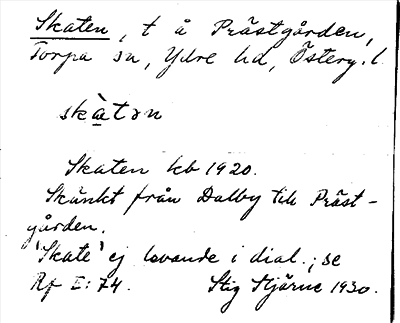 Skaten, t å Prästgården,
Torpa sn, Ydre hd, Österg. l.
skàtən
Skaten kb 1920.
Skänkt från Dalby till Präst-
gården.
'Skate' ej levande i dial.; se
Rf I:74. Stig Stjärne 1930.